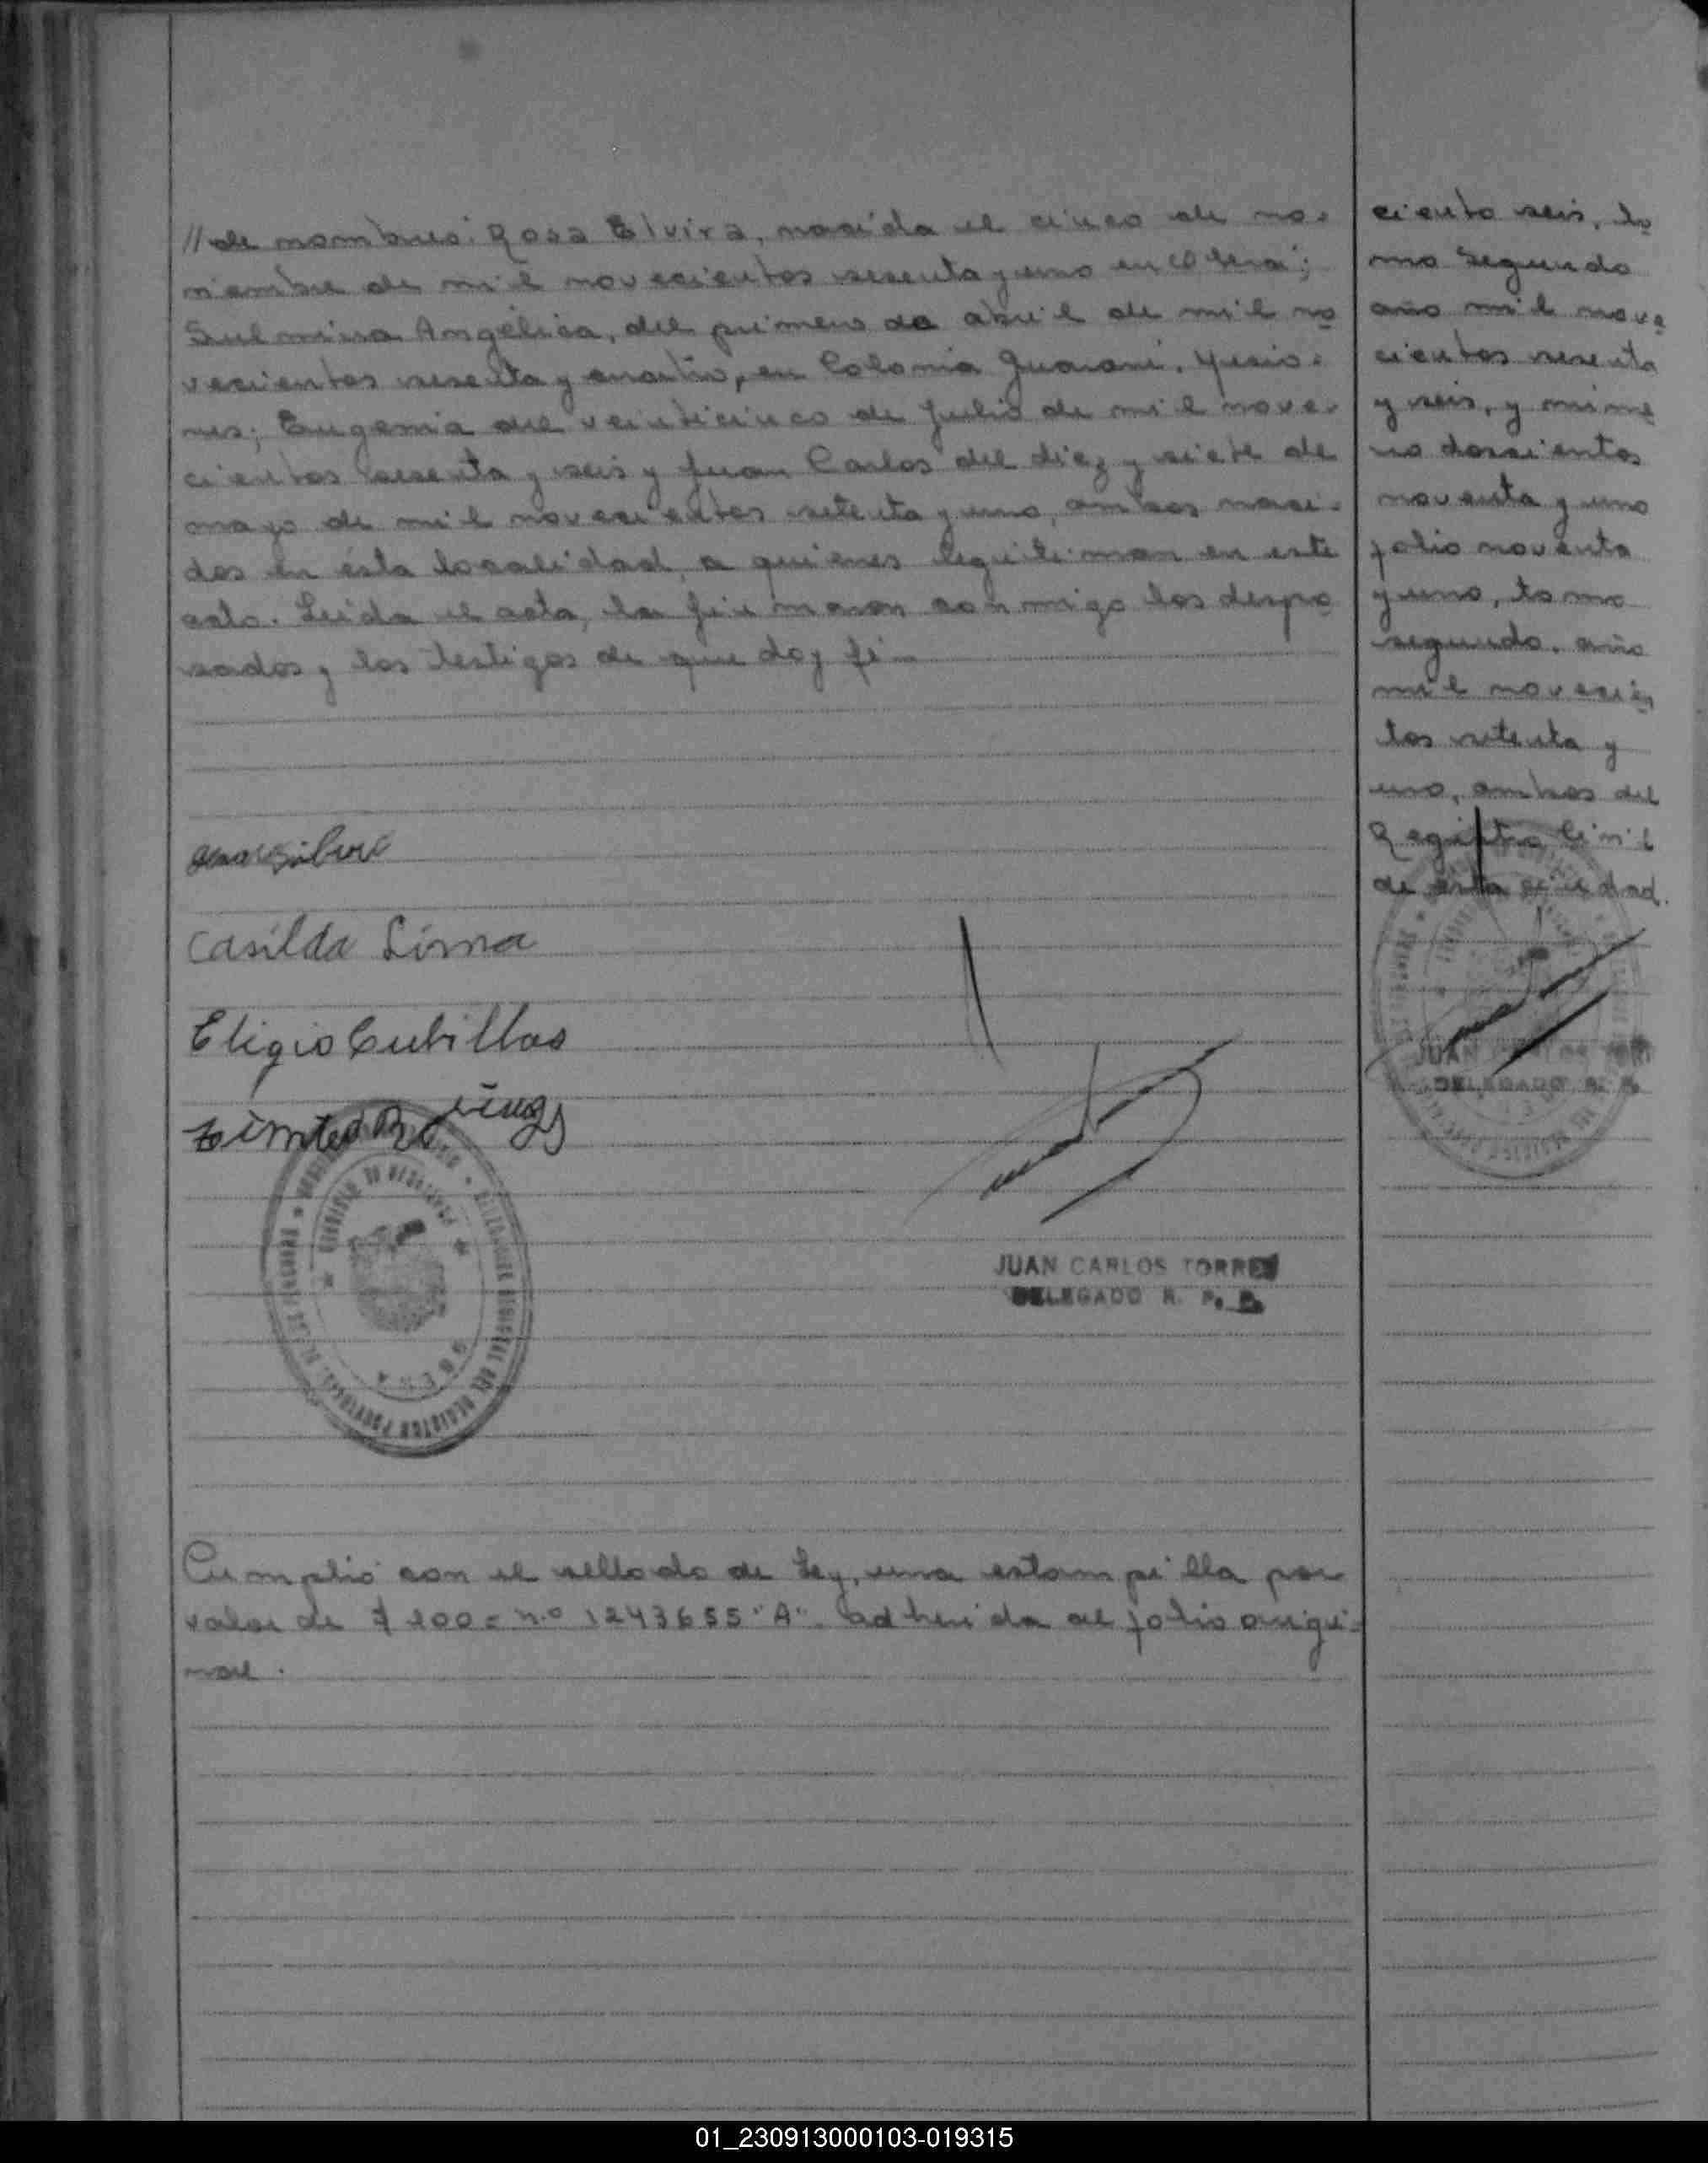 //de nombres: Rosa Elvira, nacida el cinco de no-
viembre de mil novecientos sesenta y uno en Oberá;
Angélica, del primero de abril de mil no
vecientos sesenta y cuatro, en Colonia Guaraní, Misio-
nes; Eugenia del veinticinco de Julio de mil nove-
cientos sesenta y seis y Juan Carlos del diez y siete de
mayo de mil novecientos setenta y uno, ambos naci-
dos en ésta localidad, a quienes legitiman en este
acto. Leida el acta, la firmaron conmigo los despo
sados y los testigos de que doy fé
Casilda Lima
Eligio Cubillas
JUAN CARLOS TORRES
DELEGADO R. P. P.
Cumplió con el sellado de Ley, una estampilla por
valor de $ 100 = n.o 1243655 "A". adherida al folio origi-
nal.
ciento seis, to
mo Segundo
año mil nove
cientos sesenta
y seis, y núme
ro doscientos
noventa y uno
folio noventa
y uno, tomo
segundo, año
mil novecien
tos setenta y
uno, ambos del
Registro Civil
de esta ciudad.
JUAN CARLOS TORRES
DELEGADO R. P. P.
01_230913000103-019315